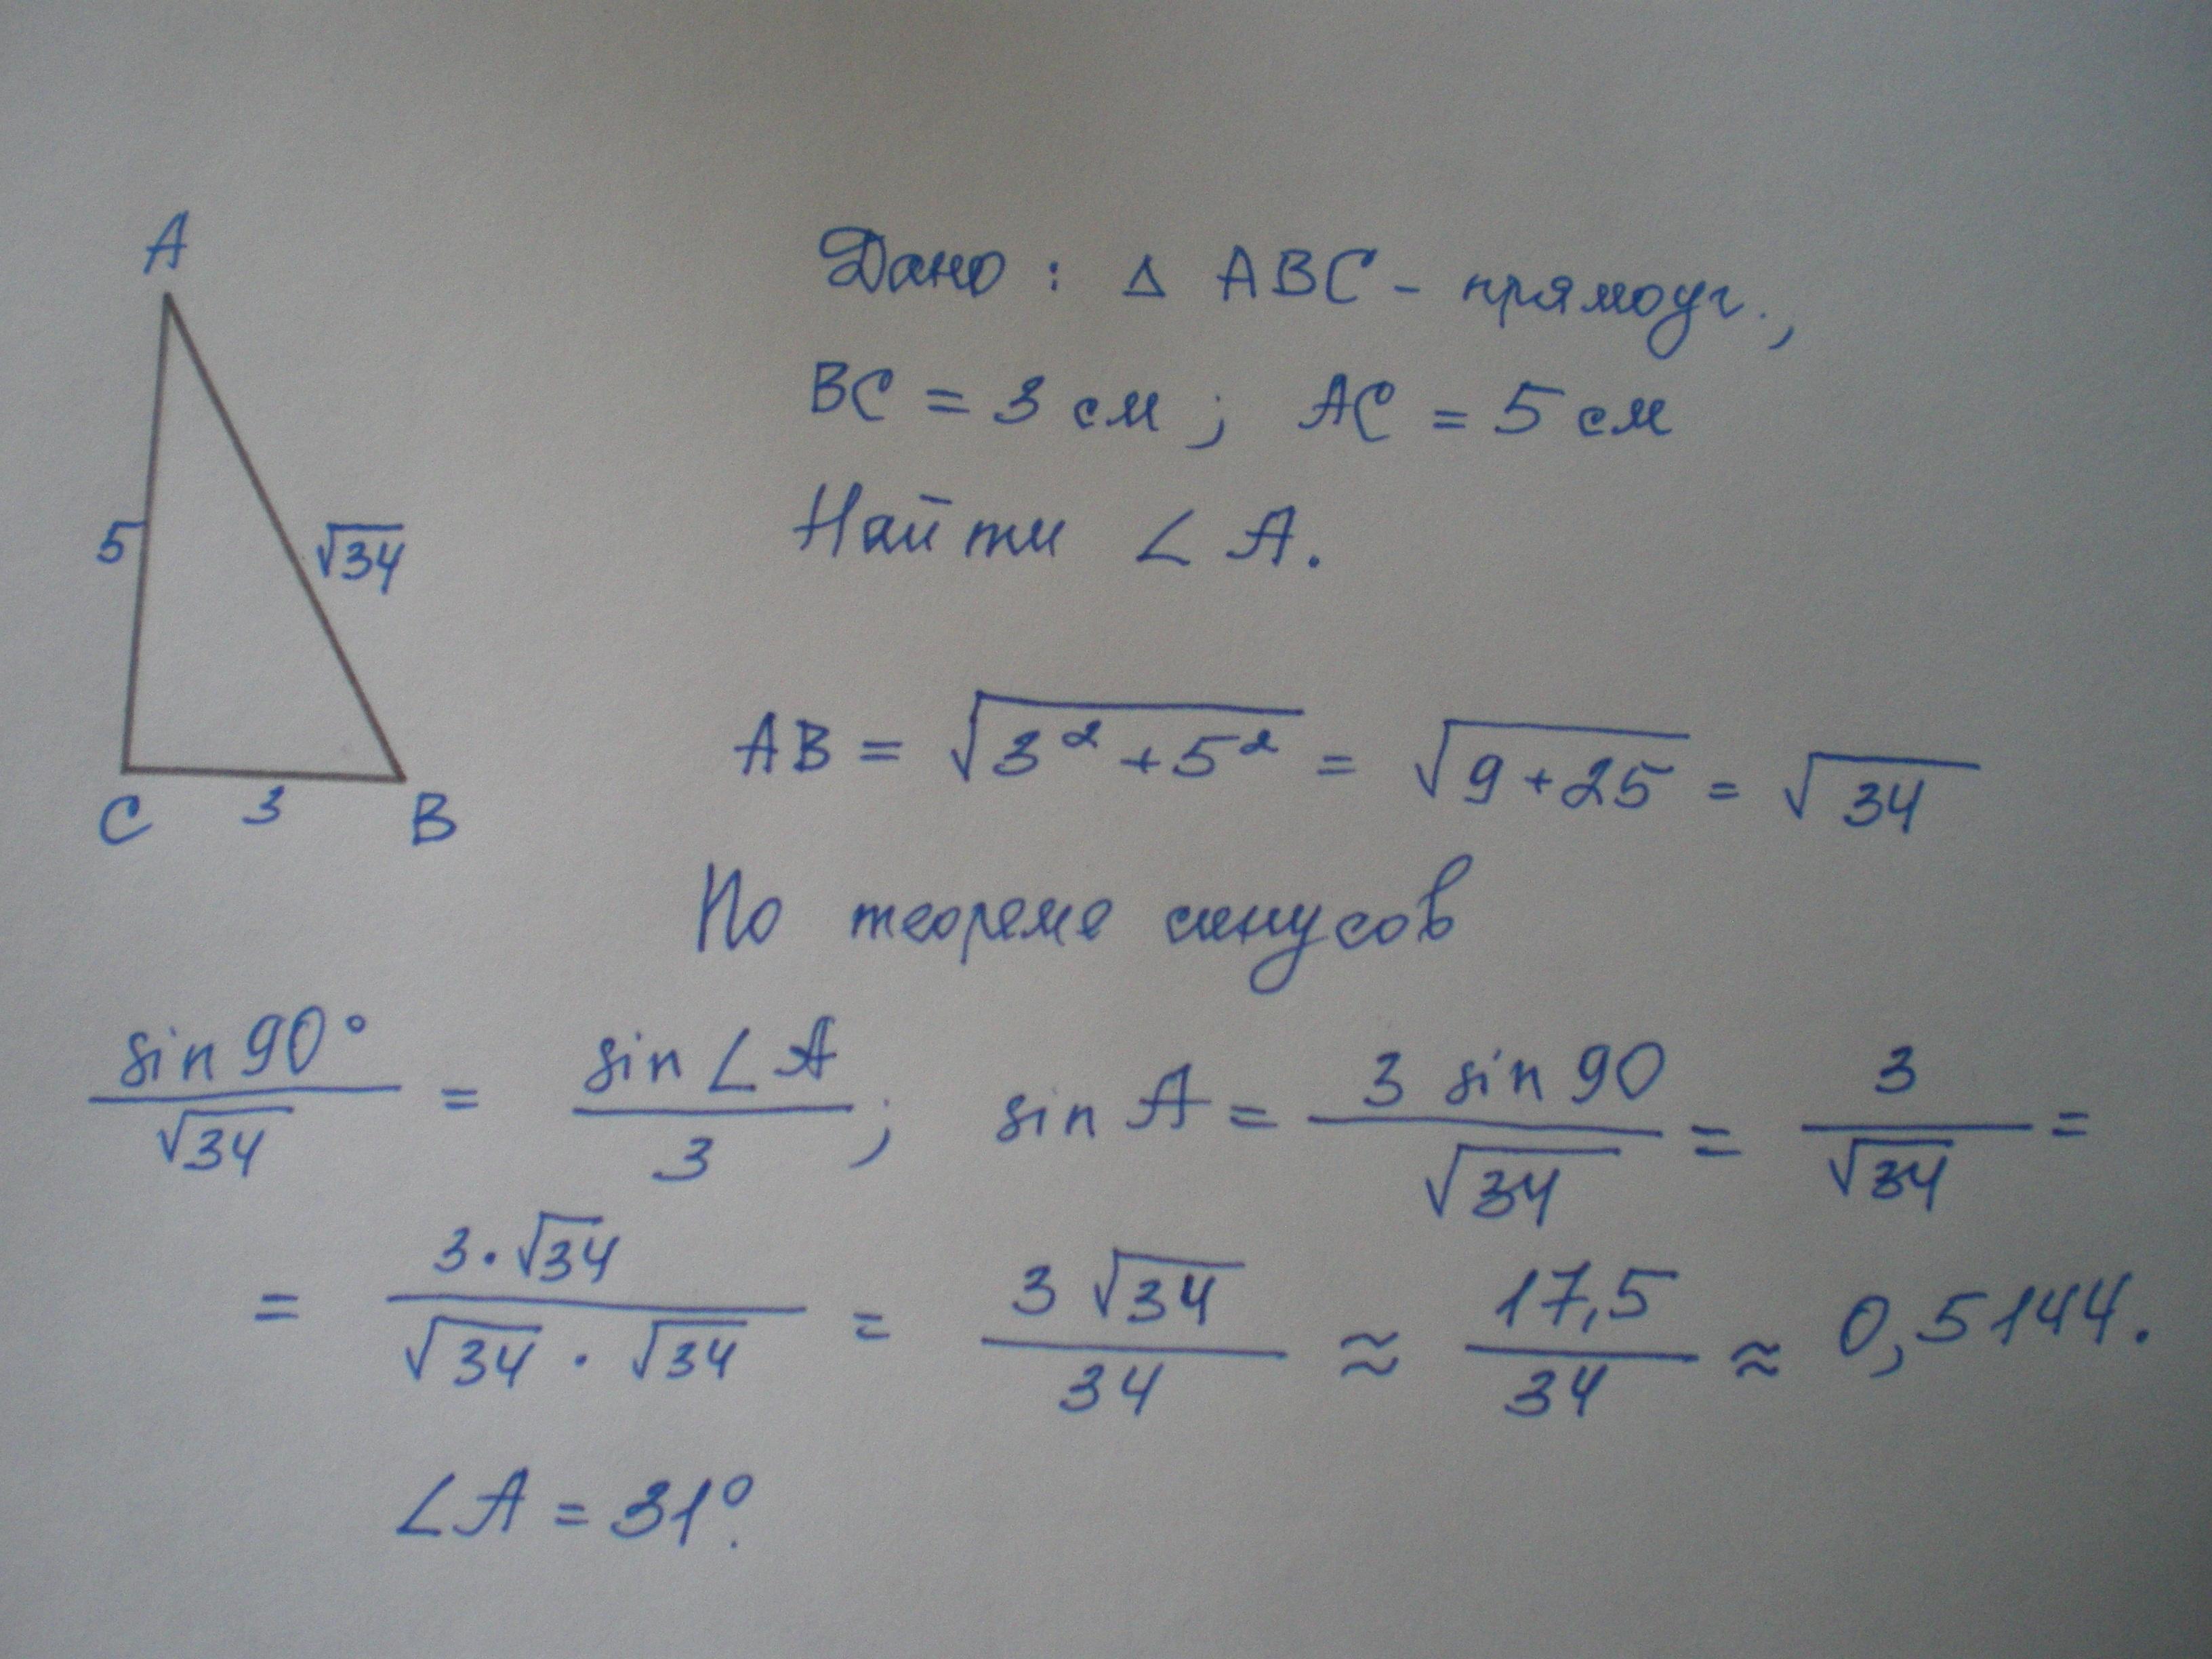 A
5
√34
C 3 B
Дано: Δ ABC - прямоуг.,
BC = 3 см; AC = 5 см
Найти ∠ A.
AB = √(3² + 5²) = √(9 + 25) = √34
По теореме синусов
sin 90° / √34 = sin ∠ A / 3; sin A = 3 sin 90 / √34 = 3 / √34 =
= 3 · √34 / (√34 · √34) = 3 √34 / 34 ≈ 17,5 / 34 ≈ 0,5144.
∠A = 31°.